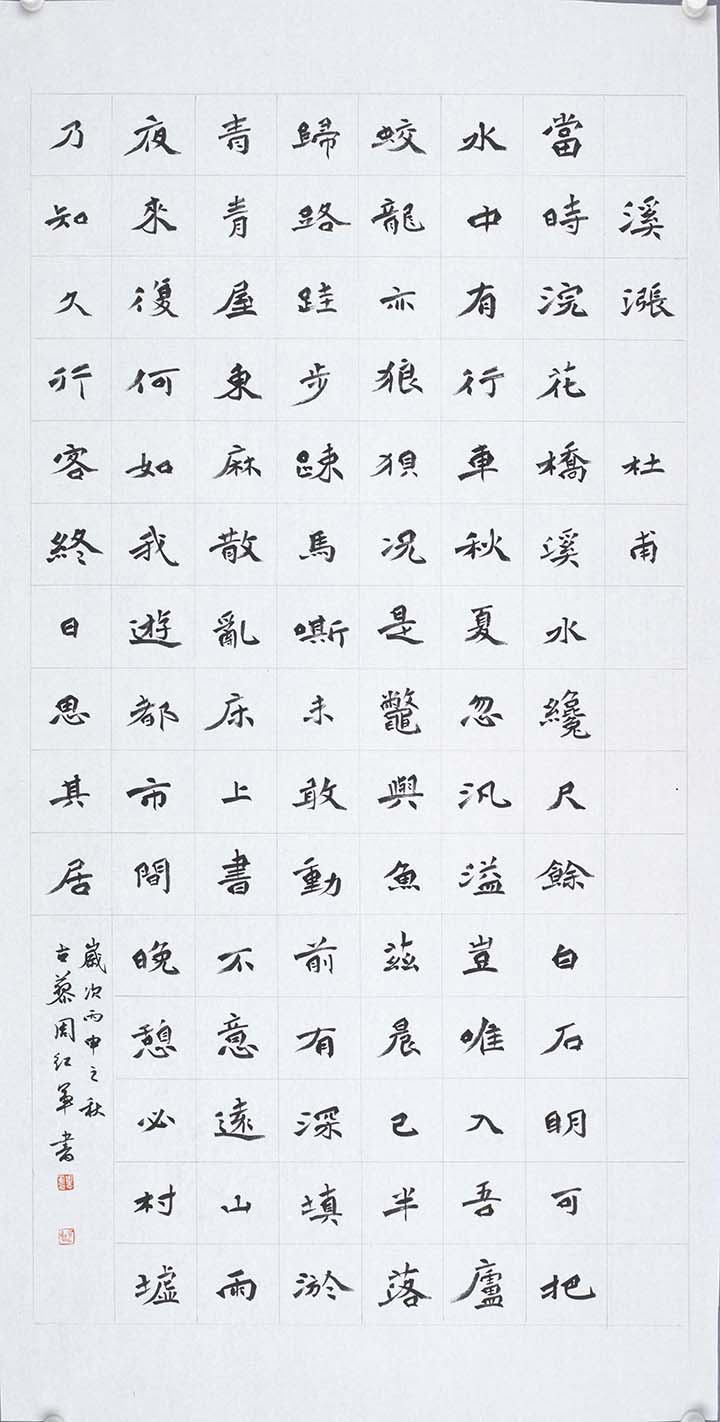 溪漲 杜甫
當時浣花橋溪水纔尺餘白石明可把
水中有行車秋夏忽汎溢豈唯入吾廬
蛟龍亦狼狽况是鼈與魚茲晨已半落
歸路跬步踈馬嘶未敢動前有深填淤
青青屋東麻散亂床上書不意遠山雨
夜來復何如我遊都市間晚憩必村墟
乃知久行客終日思其居
歲次丙申之秋
古周红军書